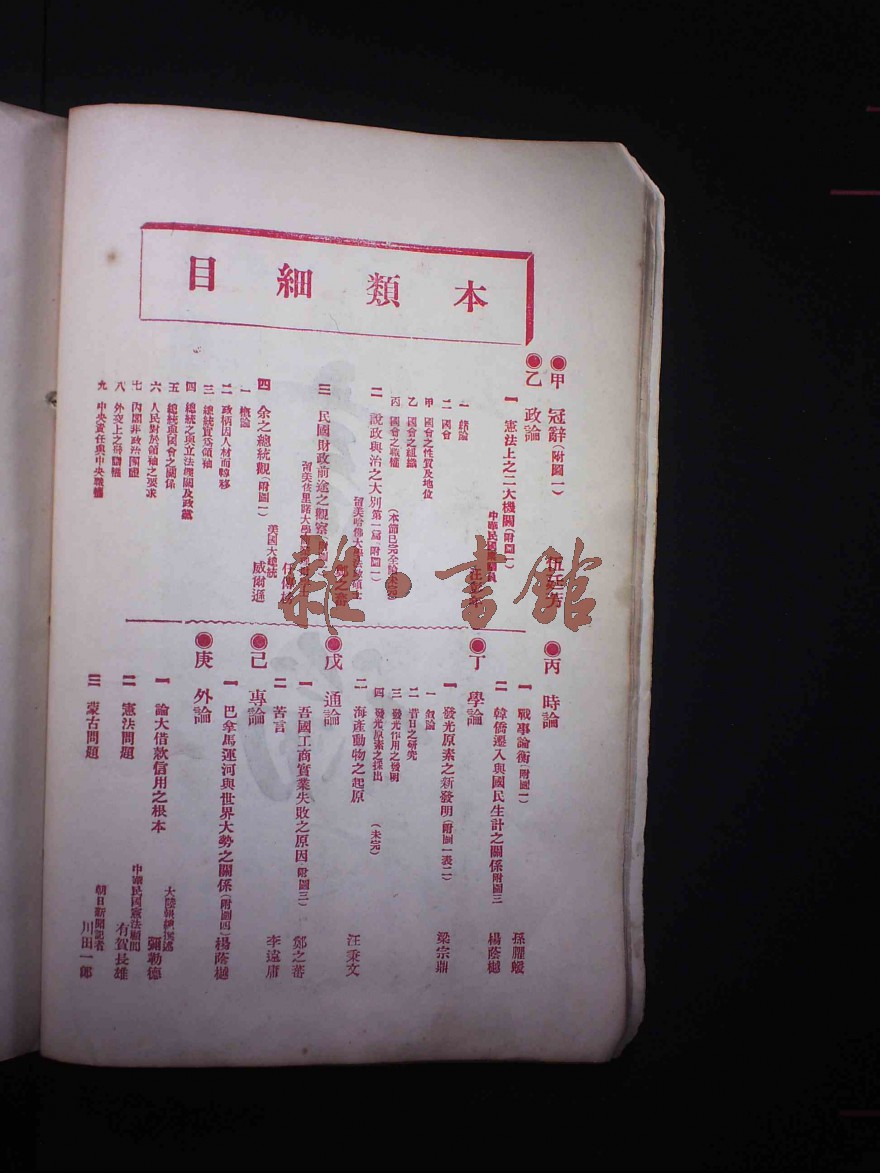 本類細目
甲 冠辭(附圖一) 伍廷芳
乙 政論
一 憲法上之二大機關(附圖二)
中華民國
一 緒論
二 國會
甲 國會之性質及地位
乙 國會之組織
丙 國會之職權 (本節已完全篇未完)
二 說政與治之大別第一篇(附圖一)
留美哈佛大學法政碩士 鄭之蕃
三 民國財政前途之觀察
留美 大學
四 余之總統觀(附圖一)
美國大總統 威爾遜
一 概論
二 政柄因人材而轉移
三 總統實為領袖
四 總統之與立法機關及政黨
五 總統與國會之關係
六 人民對於領袖之要求
七 內閣非政治團體
八 外交上之特權
九 中央責任與中央職權
丙 時論
一 戰事論衡(附圖一) 孫
二 韓僑遷入與國民生計之關係附圖三 楊蔭樾
丁 學論
一 發光原素之新發明(附圖一表二) 梁宗鼎
一 叙論
二 昔日之研究
三 發光作用之發明
四 發光原素之採出 (未完)
二 海產動物之起原 汪秉文
戊 通論
一 吾國工商實業失敗之原因(附圖三) 鄭之蕃
二 苦言 李遠庸
己 專論
一 巴拿馬運河與世界大勢之關係(附圖四) 楊蔭樾
庚 外論
一 論大借款信用之根本
大陸報 彌勒德
二 憲法問題
中華民國憲法顧問 有賀長雄
三 蒙古問題
朝日新聞記者 川田一郎
雜·書館